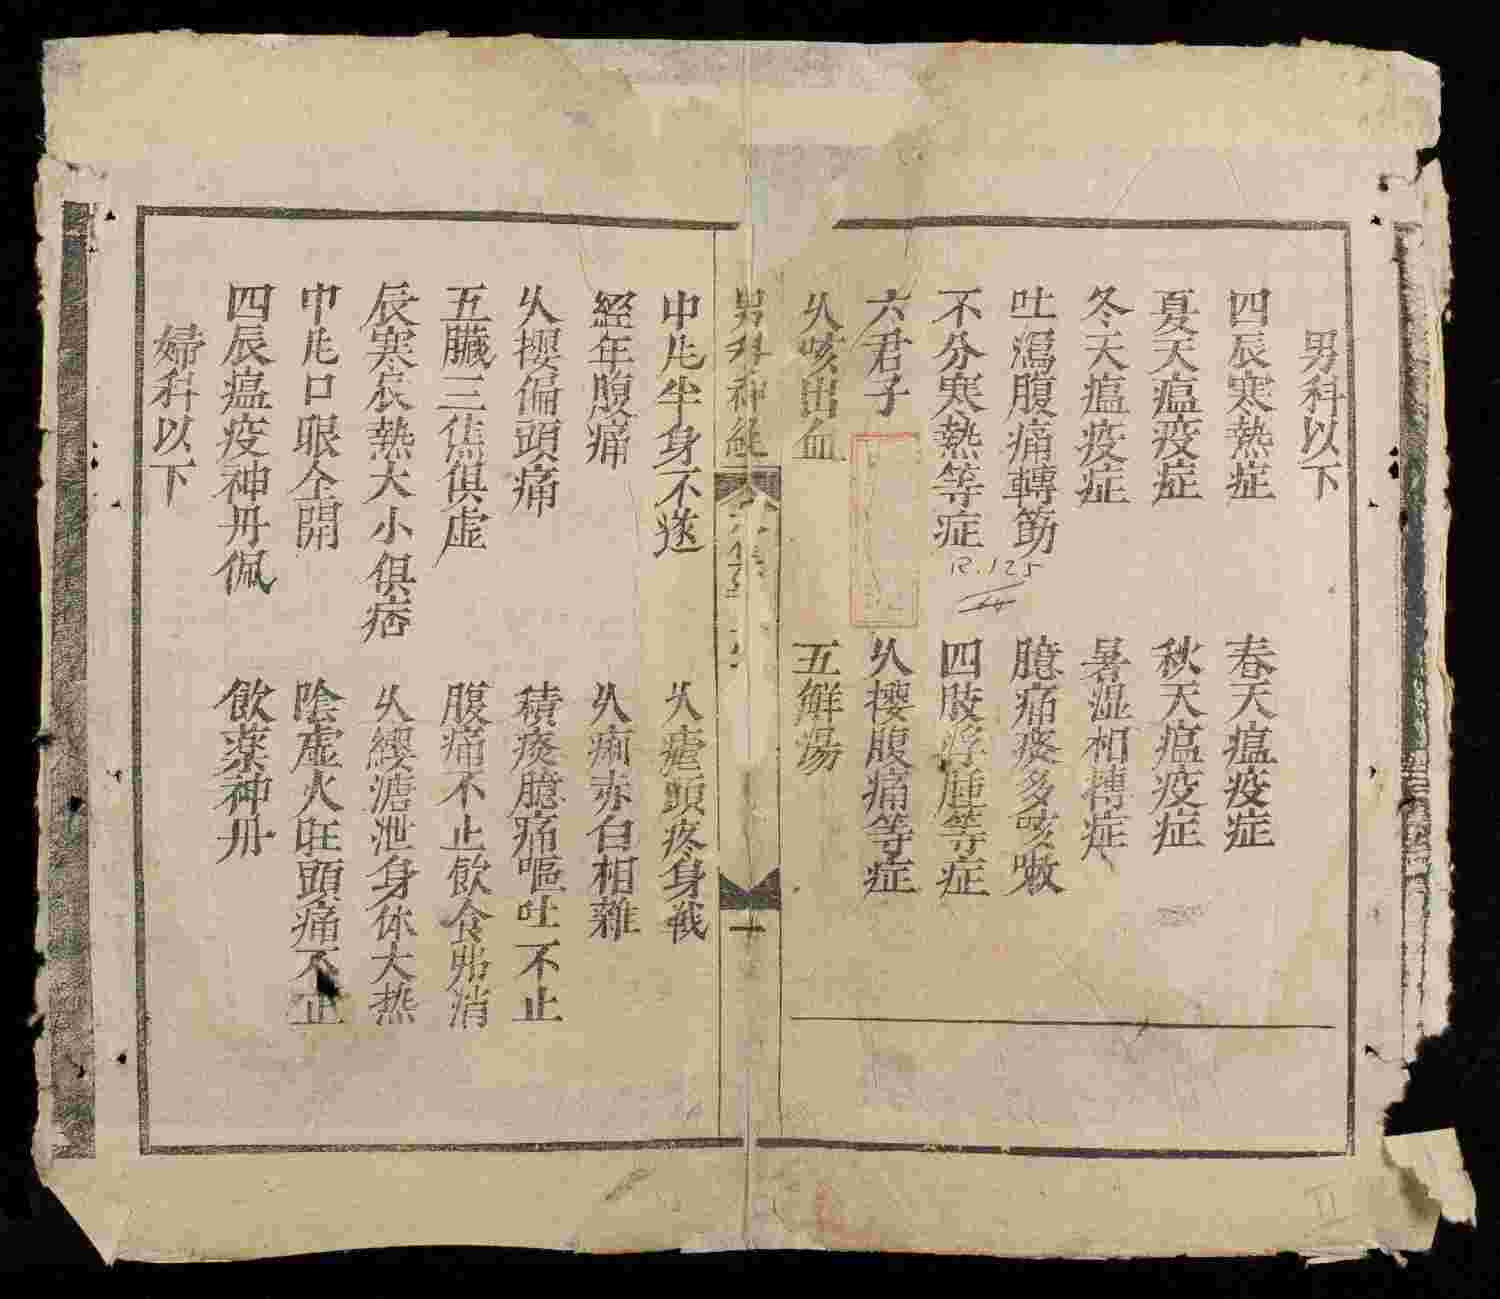 男科以下
四辰寒熱症 春天瘟疫症
夏天瘟疫症 秋天瘟疫症
冬天瘟疫症 暑湿相搏症
吐瀉腹痛轉筋 臆痛痰多咳嗽
不分寒熱等症 四肢浮腫等症
R.125
六君子 久撄腹痛等症
久咳出血 五鮮湯
男科神
十
中凨半身不遂 久瘧頭疼身戰
經年腹痛 久痢赤白相雜
久撄偏頭痛 積痰臆痛嘔吐不止
五臟三焦俱虚 腹痛不止飲食
消
辰寒辰熱大小俱痞 久緩溏泄身体大热
中凨口眼仝開 陰虚火旺頭痛不止
四辰瘟疫神丹佩 飲薬神丹
婦科以下
II